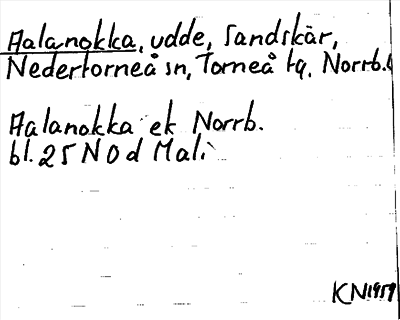 Aalanokka, udde, Sandskär,
Nedertorneå sn, Torneå tg, Norrb.
Aalanokka ek Norrb.
bl. 25 N O d Mali
KN 1959